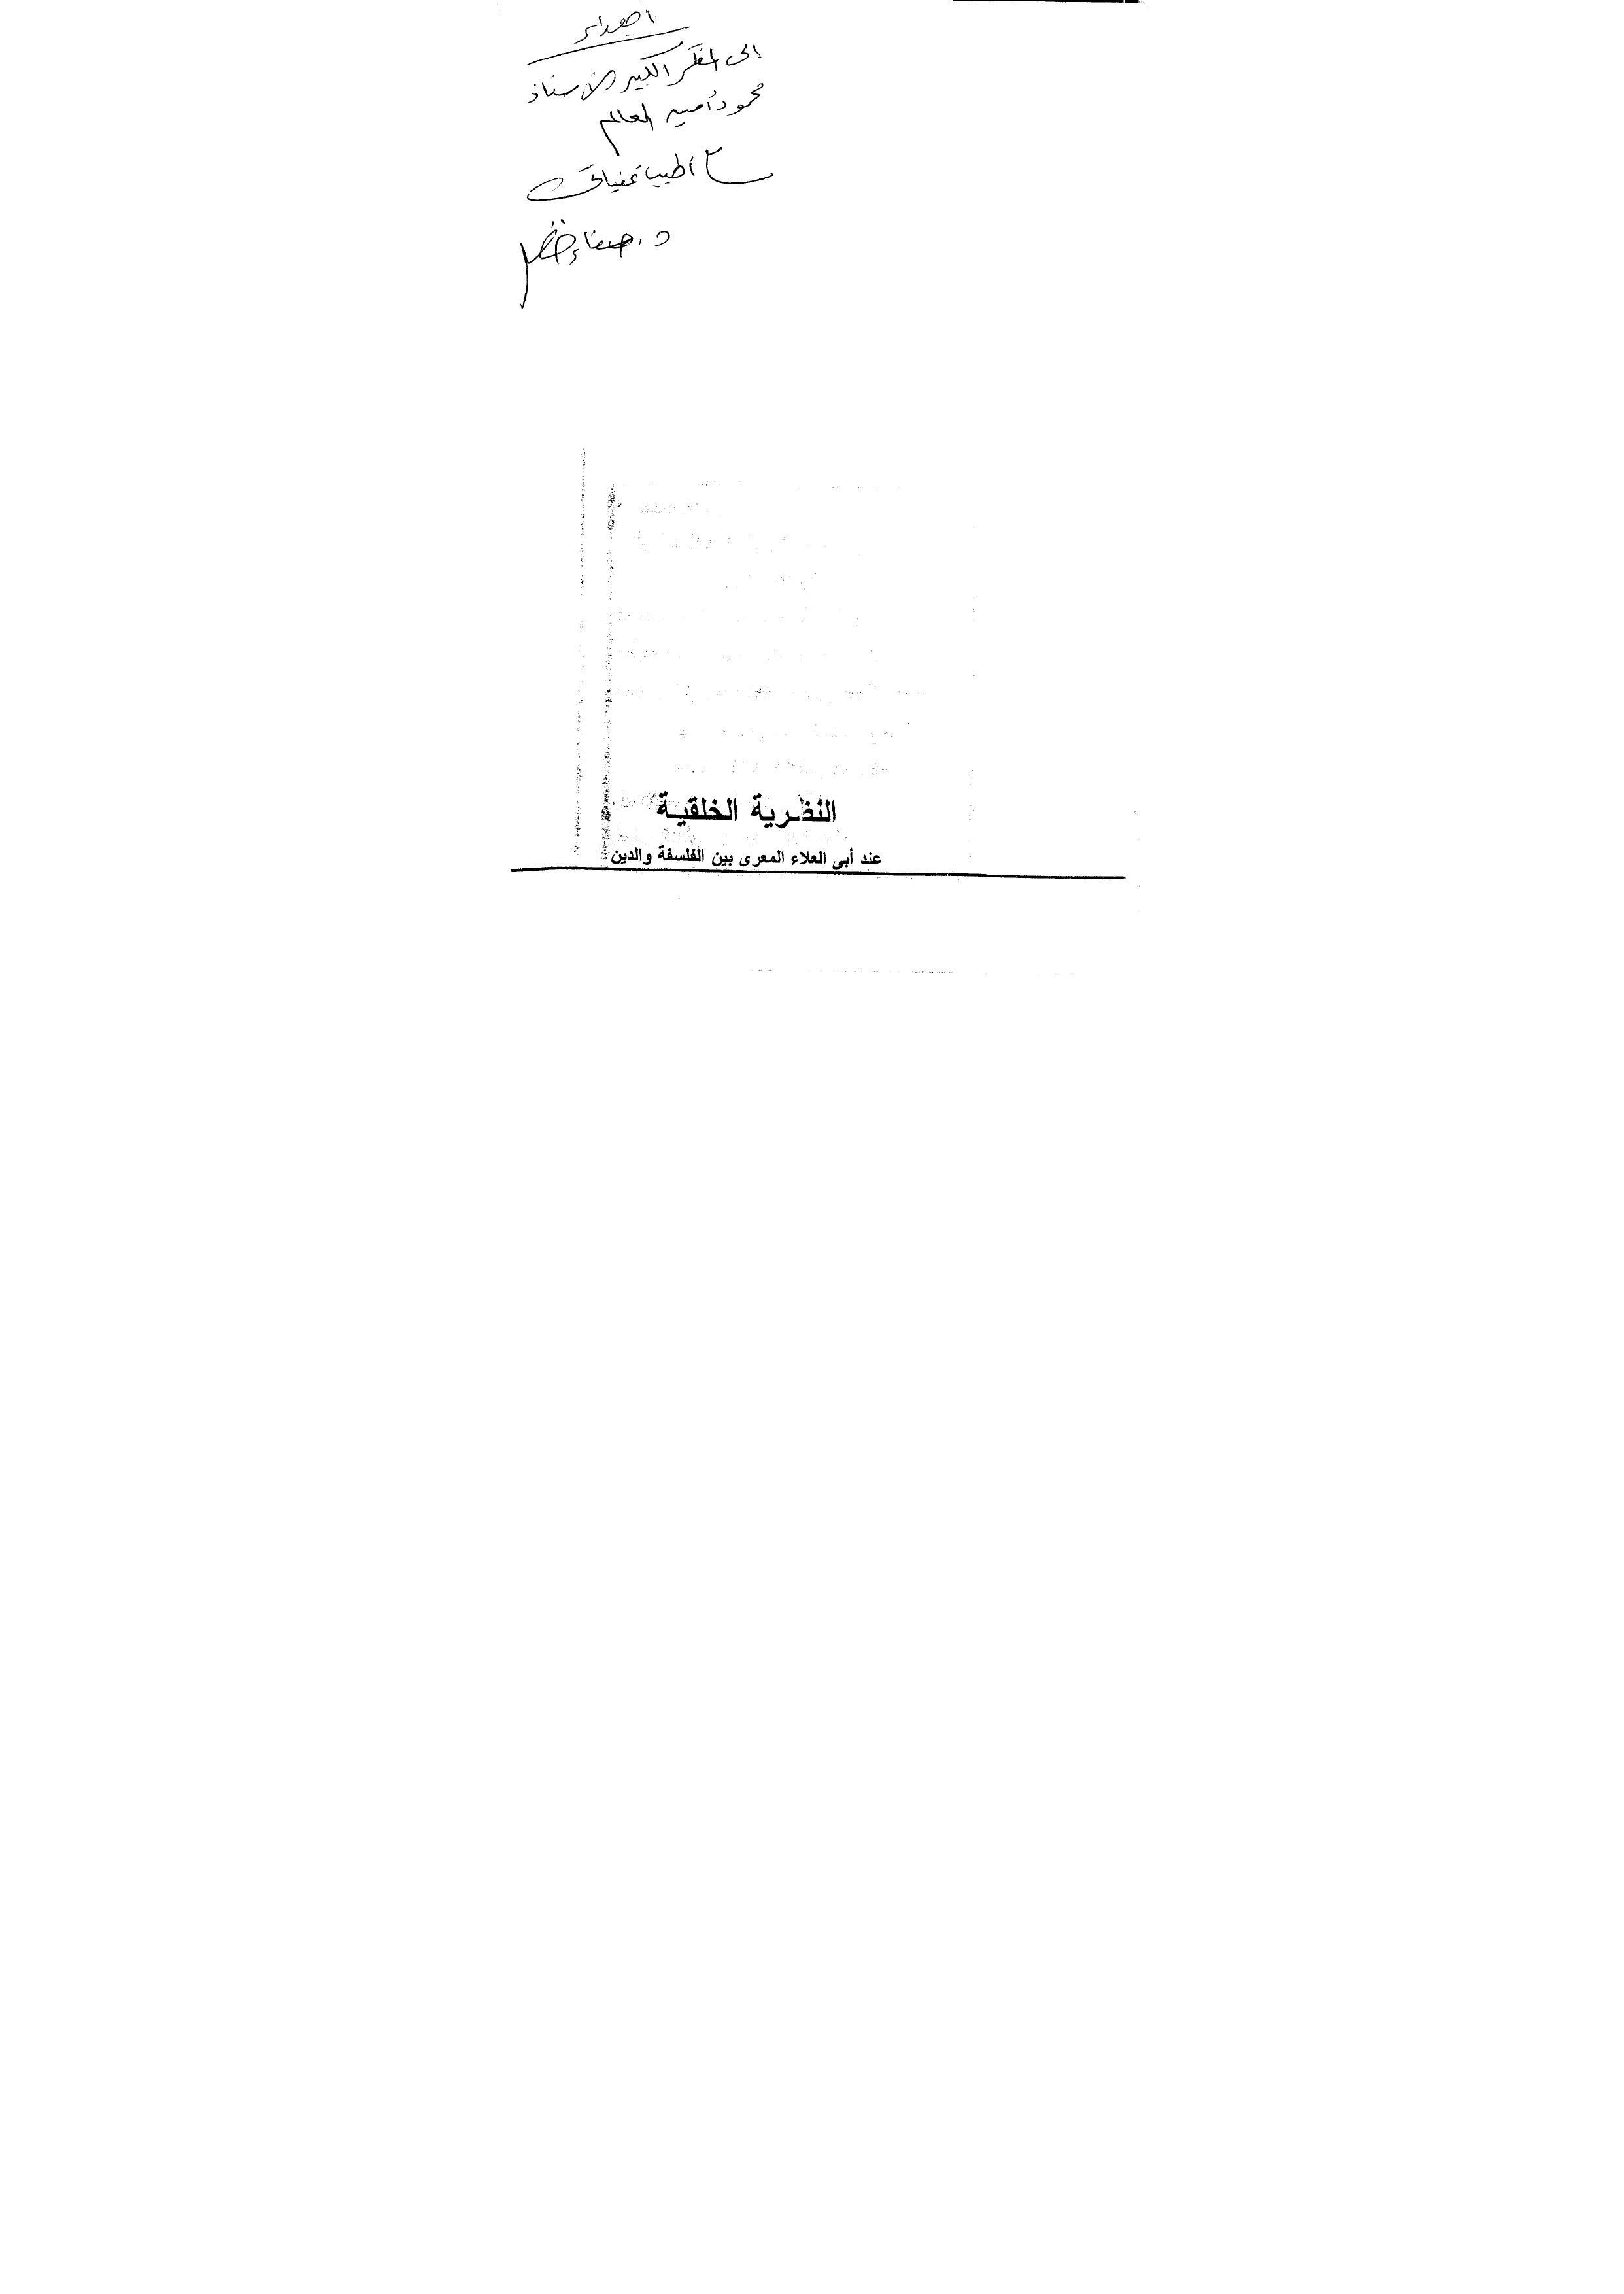 اهداء
إلى المفكر الكبير الأستاذ
محمود أمين العالم
مع أطيب تمنياتى
د. صفاء
النظرية الخلقية
عند أبي العلاء المعرى بين الفلسفة والدين